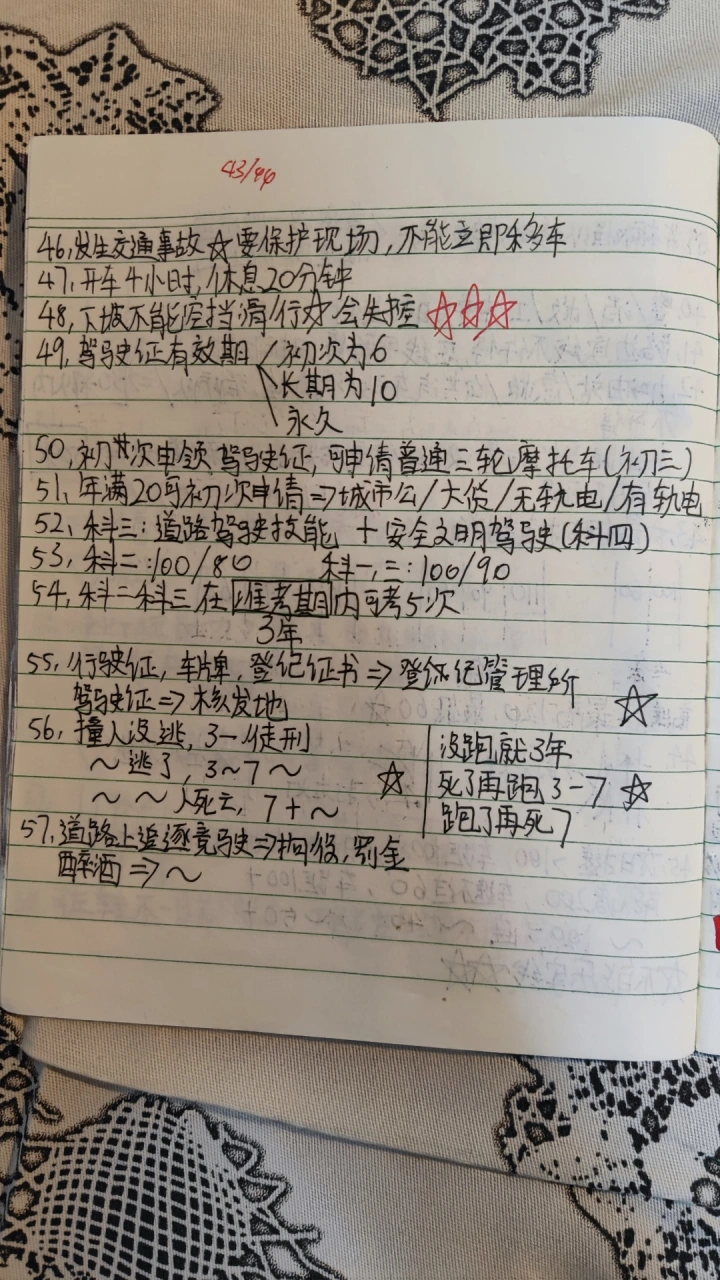 43/44
46,发生交通事故☆要保护现场,不能立即移车
47,开车4小时,休息20分钟
48,下坡不能空挡滑行☆会失控 ☆☆☆
49,驾驶证有效期/初次为6
\长期为10
\永久
50,初次申领驾驶证,可申请普通三轮摩托车(初三)
51,年满20可初次申请⇒城市公/大货/无轨电/有轨电
52,科三:道路驾驶技能 + 安全文明驾驶(科四)
53,科二:100/80 科一,三:100/90
54,科二科三在准考期内可考5次
3年
55,行驶证,车牌,登记证书⇒登记管理所
驾驶证⇒核发地 ☆
56,撞人没逃,3一徒刑
~逃了,3~7~ ☆
~~人死亡,7+~
没跑就3年
死了再跑3-7 ☆
跑了再死7
57,道路上追逐竞驶⇒拘役,罚金
醉酒⇒~